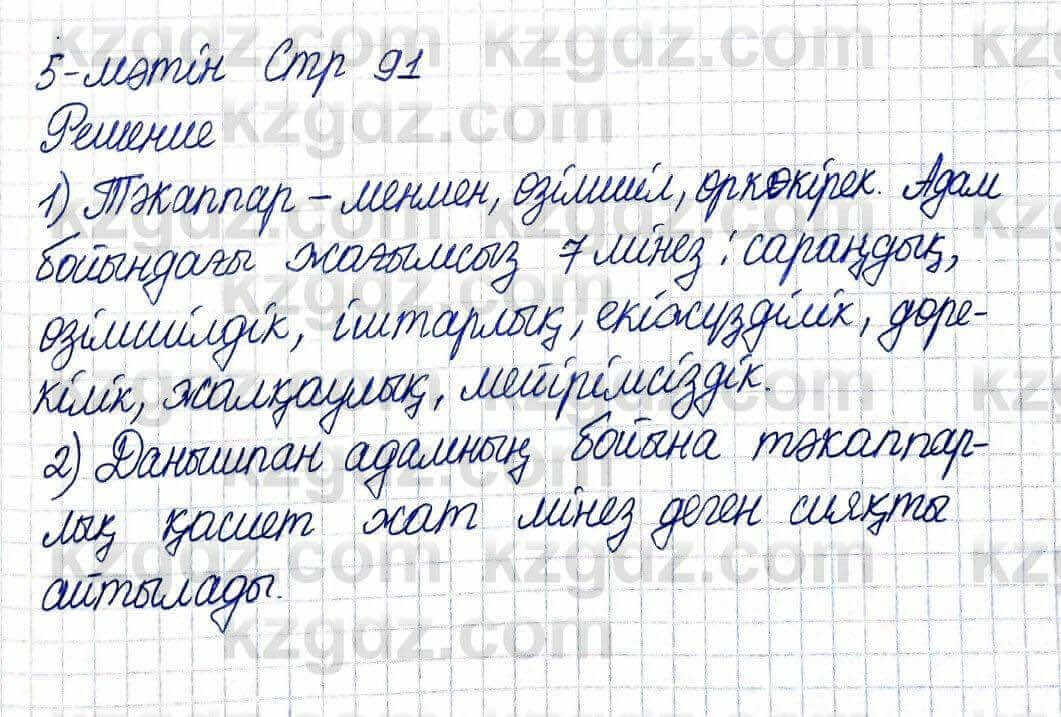 5-мәтін Стр 91
Решение
1) Тәкаппар – менмен, өзімшіл, өркөкірек. Адам
бойындағы жағымсыз 7 мінез: сараңдық,
өзімшілдік, іштарлық, екіжүзділік, дөре-
кілік, жалқаулық, мейірімсіздік.
2) Данышпан адамның бойына тәкаппар-
лық қасиет жат мінез деген сияқты
айтылады.
kzgdz.com